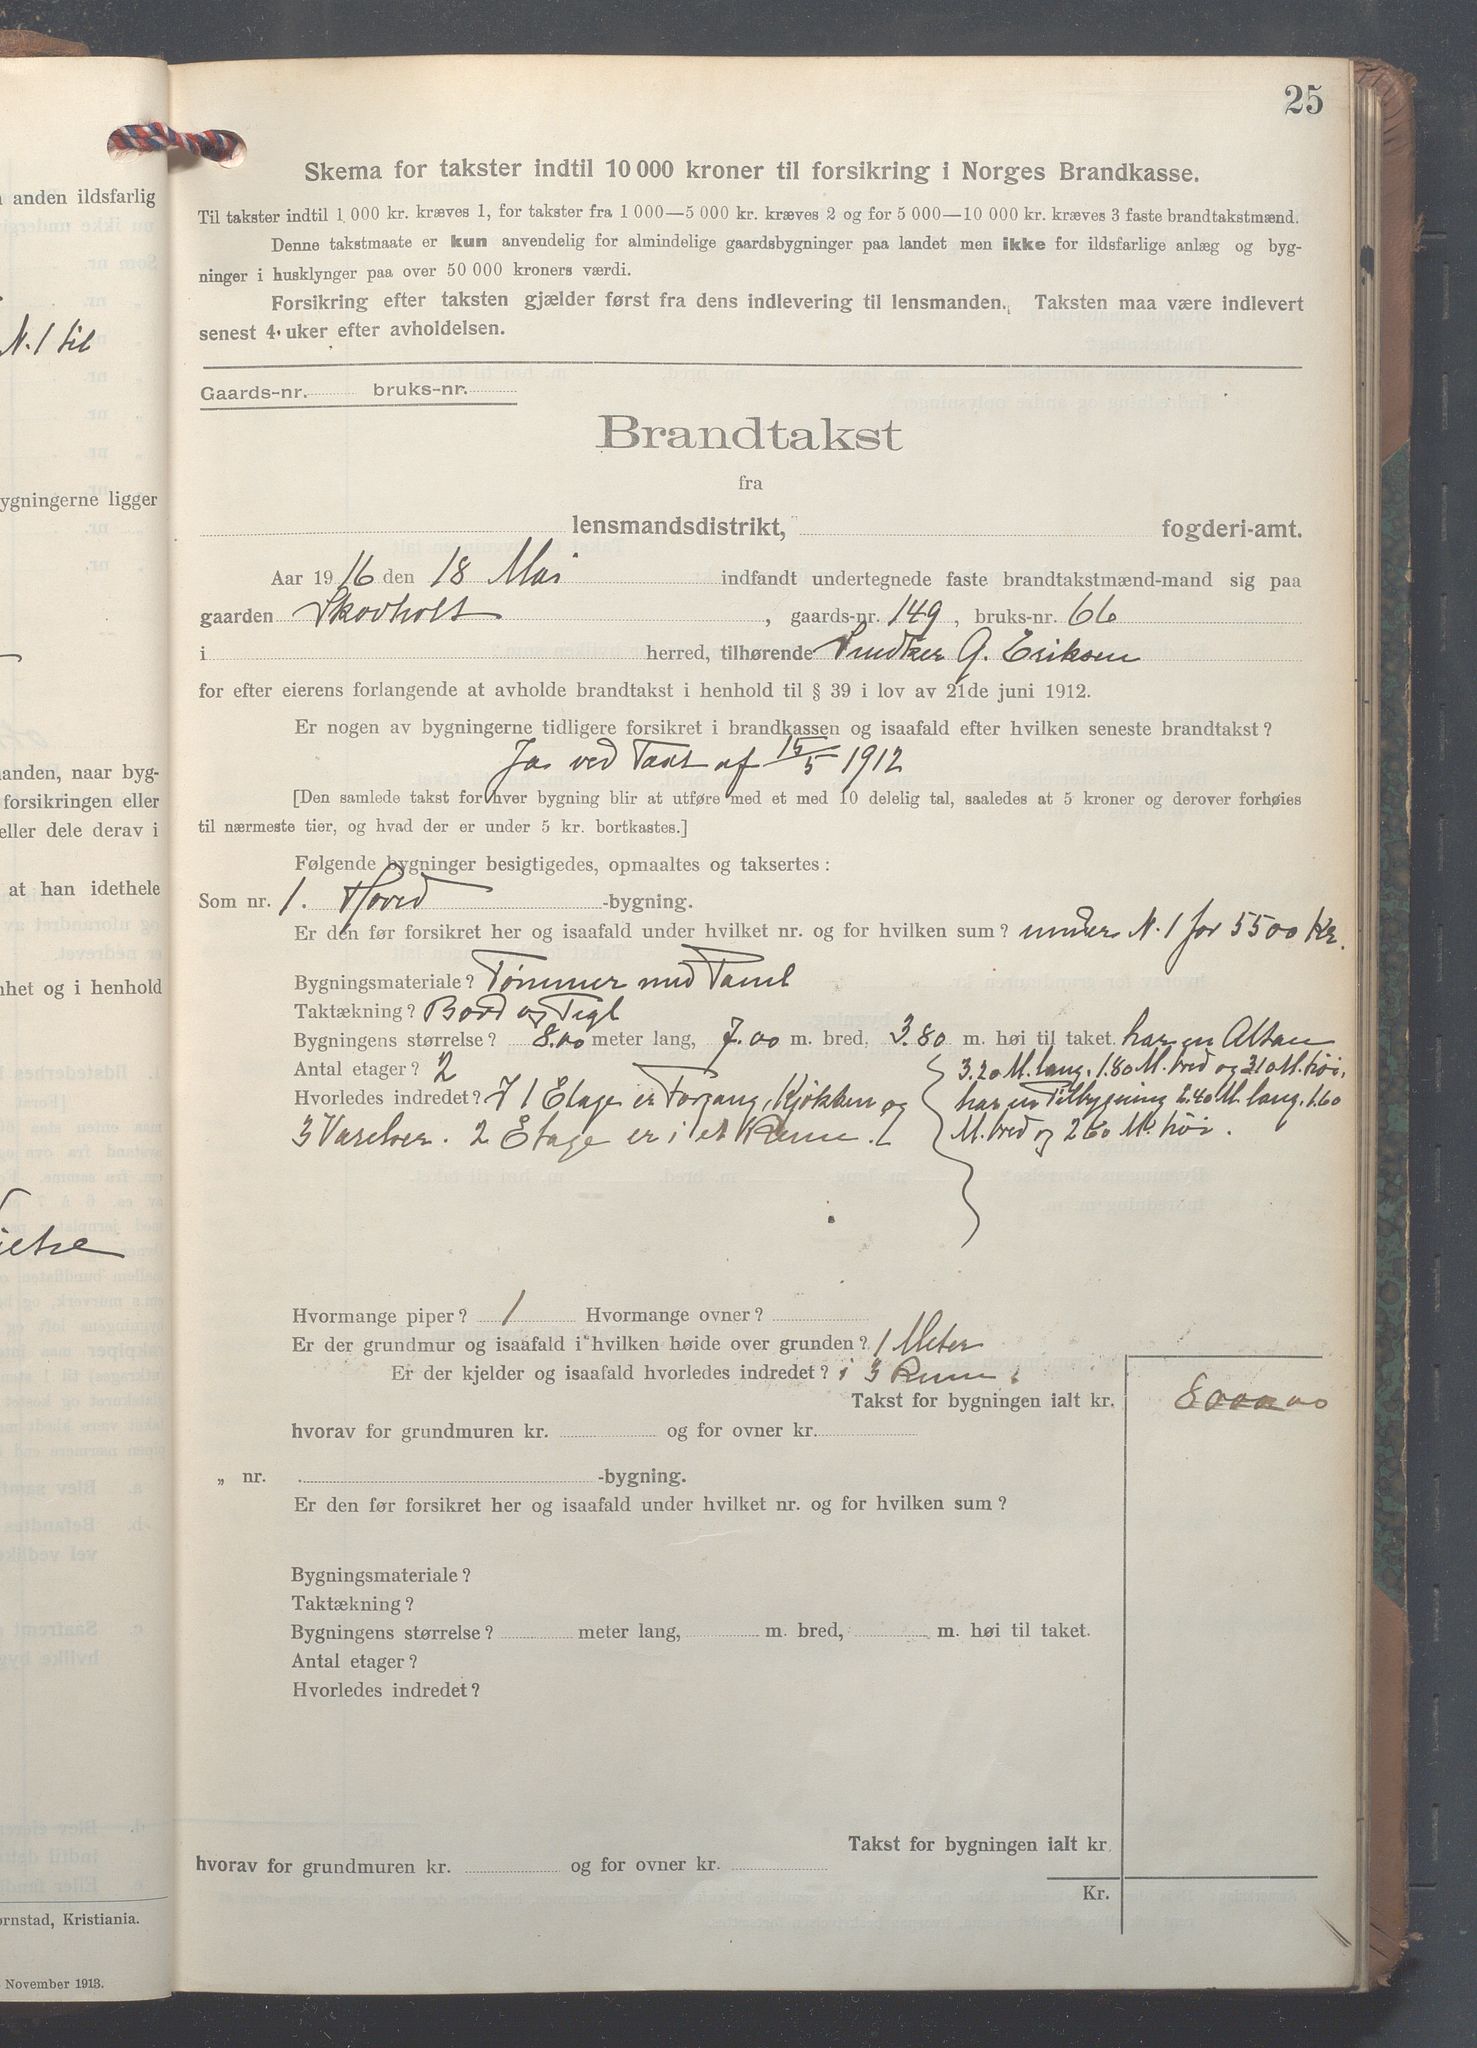 25
anden ildsfarlig
N. 1 til
ygningerne ligger
anden, naar byg-
forsikringen eller
eller dele derav i
at han idethele
nhet og i henhold
ørnstad, Kristiania.
November 1913.
Skema for takster indtil 10 000 kroner til forsikring i Norges Brandkasse.
Til takster indtil 1 000 kr. kræves 1, for takster fra 1 000—5 000 kr. kræves 2 og for 5 000—10 000 kr. kræves 3 faste brandtakstmænd.
Denne takstmaate er kun anvendelig for almindelige gaardsbygninger paa landet men ikke for ildsfarlige anlæg og byg-
ninger i husklynger paa over 50 000 kroners værdi.
Forsikring efter taksten gjælder først fra dens indlevering til lensmanden. Taksten maa være indlevert
senest 4 uker efter avholdelsen.
Gaards-nr. bruks-nr.
Brandtakst
fra
lensmandsdistrikt, fogderi-amt.
Aar 1916 den 18 Mai indfandt undertegnede faste brandtakstmænd-mand sig paa
gaarden Skovholt, gaards-nr. 149, bruks-nr. 66
i herred, tilhørende G. Eriksen
for efter eierens forlangende at avholde brandtakst i henhold til § 39 i lov av 21de juni 1912.
Er nogen av bygningerne tidligere forsikret i brandkassen og isaafald efter hvilken seneste brandtakst?
Ja ved Taxt af 15/5 1912
[Den samlede takst for hver bygning blir at utføre med et med 10 delelig tal, saaledes at 5 kroner og derover forhøies
til nærmeste tier, og hvad der er under 5 kr. bortkastes.]
Følgende bygninger besigtigedes, opmaaltes og taksertes:
Som nr. 1. Hoved -bygning.
Er den før forsikret her og isaafald under hvilket nr. og for hvilken sum? under N. 1 for 5500 Kr.
Bygningsmateriale? Tømmer med Panel
Taktækning? Bord og Tegl
Bygningens størrelse? 8.00 meter lang, 7.00 m. bred, 3.80 m. høi til taket. har en Altan
Antal etager? 2 3.20 M. lang, 1.80 M. bred og 3.10 M. høi,
Hvorledes indredet? I 1 Etage er Forgang, Kjøkken og har en Tilbygning 2.40 M. lang, 1.60
3 Værelser. 2 Etage er i et Rum. M. bred og 2.60 M. høi.
Hvormange piper? 1 Hvormange ovner?
Er der grundmur og isaafald i hvilken høide over grunden? 1 Meter
Er der kjelder og isaafald hvorledes indredet? i 3 Rum.
Takst for bygningen ialt kr. 8000.00
hvorav for grundmuren kr. og for ovner kr.
„ nr. -bygning.
Er den før forsikret her og isaafald under hvilket nr. og for hvilken sum?
Bygningsmateriale?
Taktækning?
Bygningens størrelse? meter lang, m. bred, m. høi til taket.
Antal etager?
Hvorledes indredet?
Takst for bygningen ialt kr.
hvorav for grundmuren kr. og for ovner kr.
Kr.